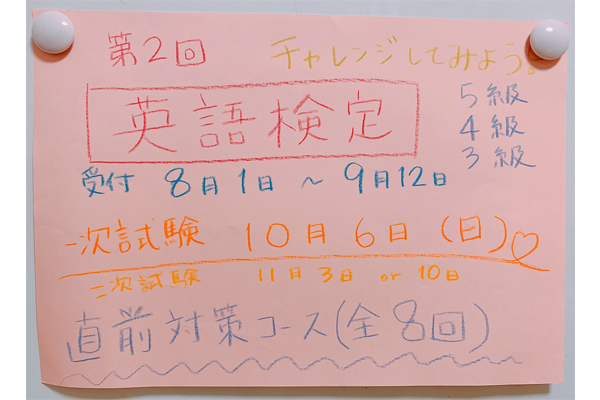 第2回 チャレンジしてみよう。
英語検定
5級
4級
3級
受付 8月1日 ～ 9月12日
一次試験 10月6日(日)♡
二次試験 11月3日 or 10日
直前対策コース(全8回)